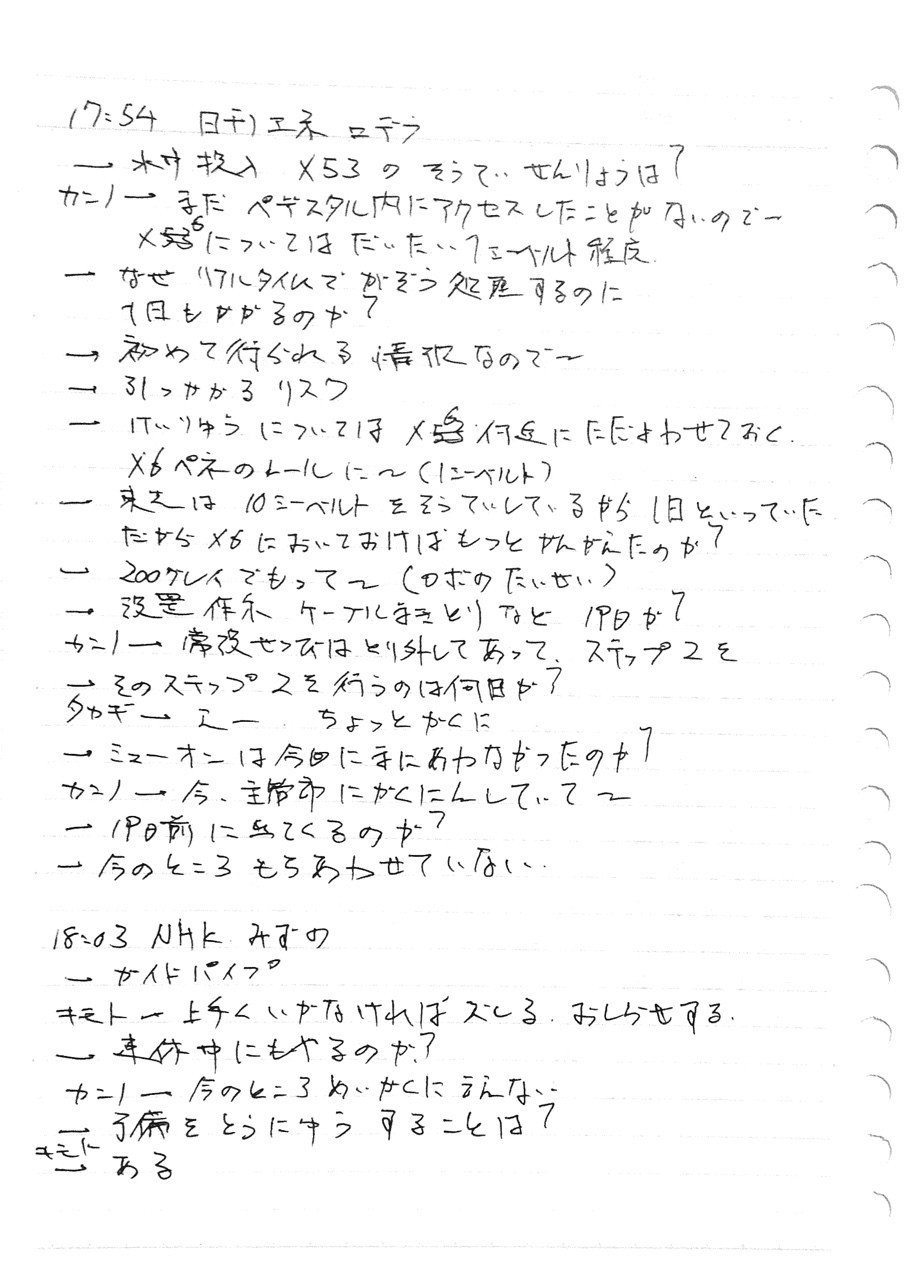 17:54 日刊工ネ ロデラ
→ 投入 X53の そうていせんりょうは?
カンノ→ まだ ペデスタル内にアクセスしたことがないので〜
X6についてはだいたい1シーベルト程度
→ なぜ リアルタイムで がぞう処理するのに
1日もかかるのか?
→ 初めて行われる情況なので〜
→ 引っかかる リスク
→ けいりゅうについては X6付近にただよわせておく.
X6ペネのレールに〜(1シーベルト)
→ 東芝は 10シーベルトをそうていしているから 1日といっていた
だから X6においておけばもっとかんがえたのか?
→ 200グレイでもって〜(ロボのたいせい)
→ 設置作業 ケーブルまきとりなど 19日か?
カンノ→ 常設せつびはとり外してあって、ステップ2を
→ そのステップ2を行うのは何日か?
タカギ→ えー ちょっとかくに
→ ミューオンは今回にまにあわなかったのか?
カンノ→ 今、主管部にかくにんしていて〜
→ 19日前に出てくるのか?
→ 今のところもちあわせていない.
18:03 NHK みずの
→ ガイドパイプ
キモト→ 上手くいかなければズレる. おしらせする.
→ 連休中にもやるのか?
カンノ→ 今のところめいかくに言えない
→ 予備をとうにゅうすることは?
キモト
→ ある